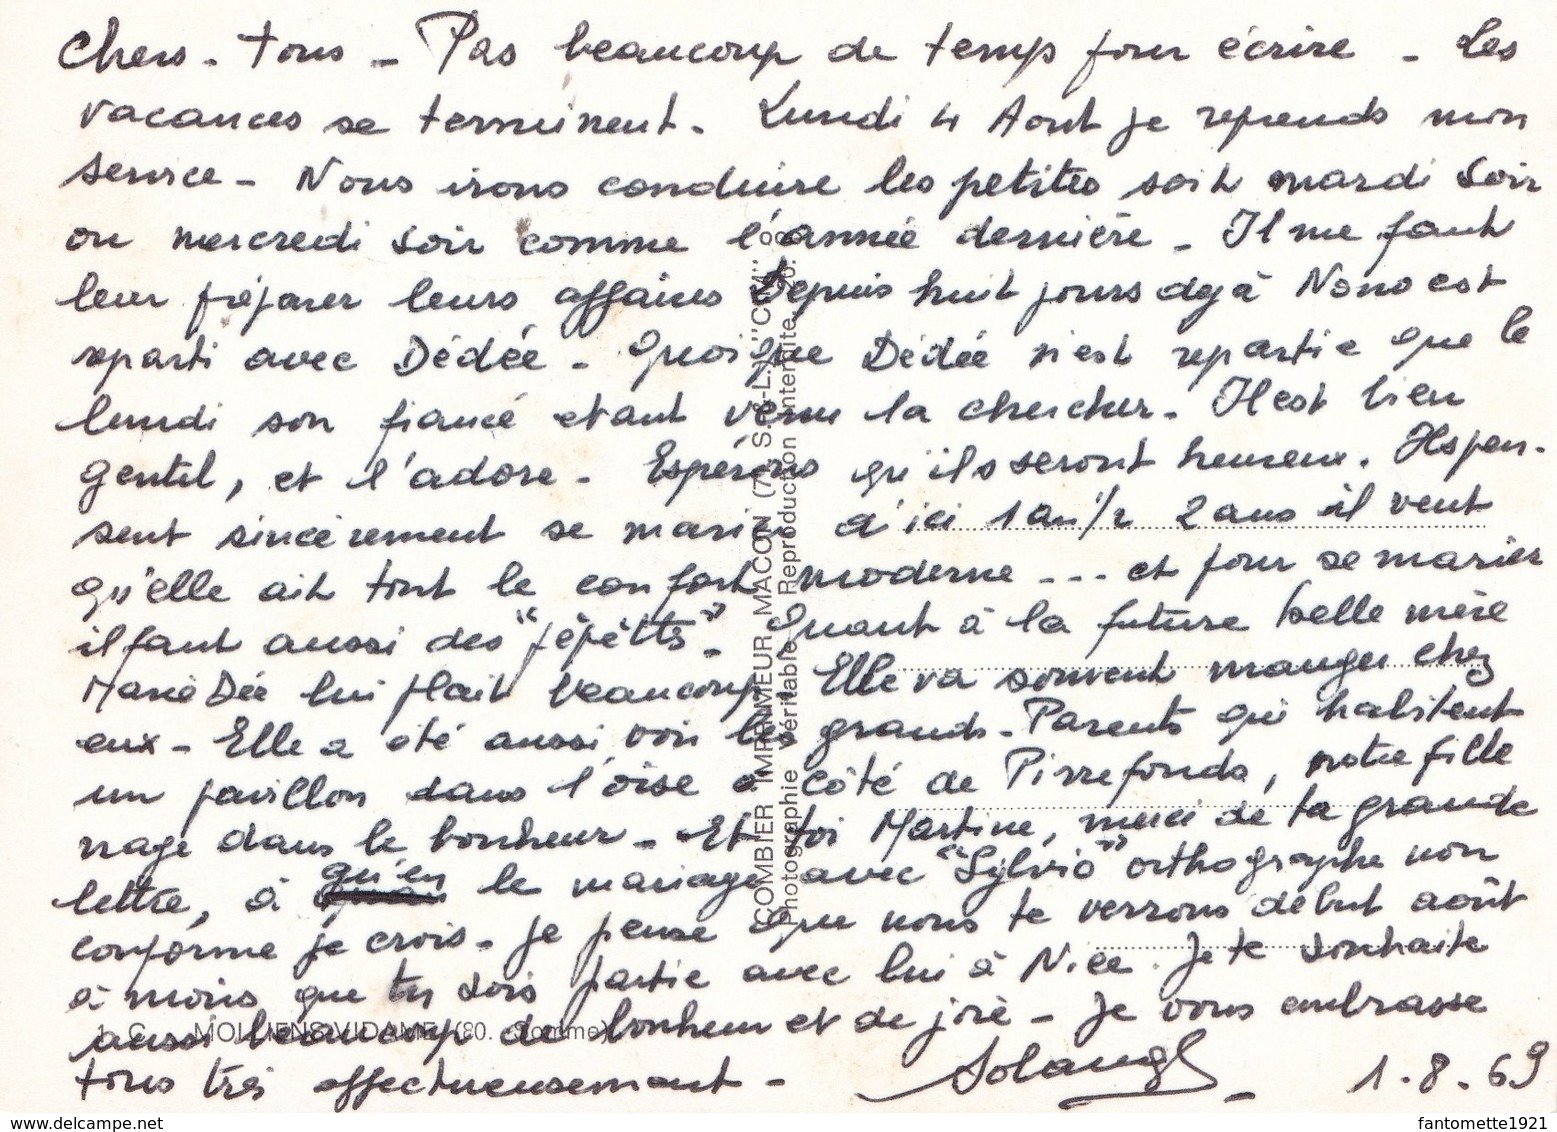 Chers - tous - Pas beaucoup de temps pour écrire - Les
vacances se terminent. Lundi 4 Aout je reprends mon
service - Nous irons conduire les petites soit mardi soir
ou mercredi soir comme l'année dernière - Il me faut
leur préparer leurs affaires Depuis huit jours dejà Nono est
reparti avec Dédée - Quoique Dédée n'est repartie que le
lundi son fiancé etant venu la chercher. Il est bien
gentil, et l'adore - Espérons qu'ils seront heureux. Ils pen-
sent sincèrement se marier d'ici 1 an 1/2 2 ans il veut
qu'elle ait tout le confort moderne --- et pour se marier
il faut aussi des "pépètts" - Quant à la future belle mère
Marie Dée lui plait beaucoup Elle va souvent manger chez
eux - Elle a été aussi voir les grands - Parents qui habitent
un pavillon dans l'oise à côté de Pierrefonds, notre fille
nage dans le bonheur - Et toi Martine, merci de ta grande
lettre, à qu'en le mariage avec "Sylvio" orthographe non
conforme je crois - je pense que nous te verrons début août
à moins que tu sois partie avec lui à Nice. Je te souhaite
aussi beaucoup de bonheur et de joie - Je vous embrasse
tous très affectueusement -
Solange
1.8.69
COMBIER IMPRIMEUR MACON (71, S.-&-L.) "CIM"
Photographie Véritable, Reproduction interdite,
1. C. - MOLLIENS-VIDAME (80. - Somme)
fantomette1921.delcampe.net
fantomette1921